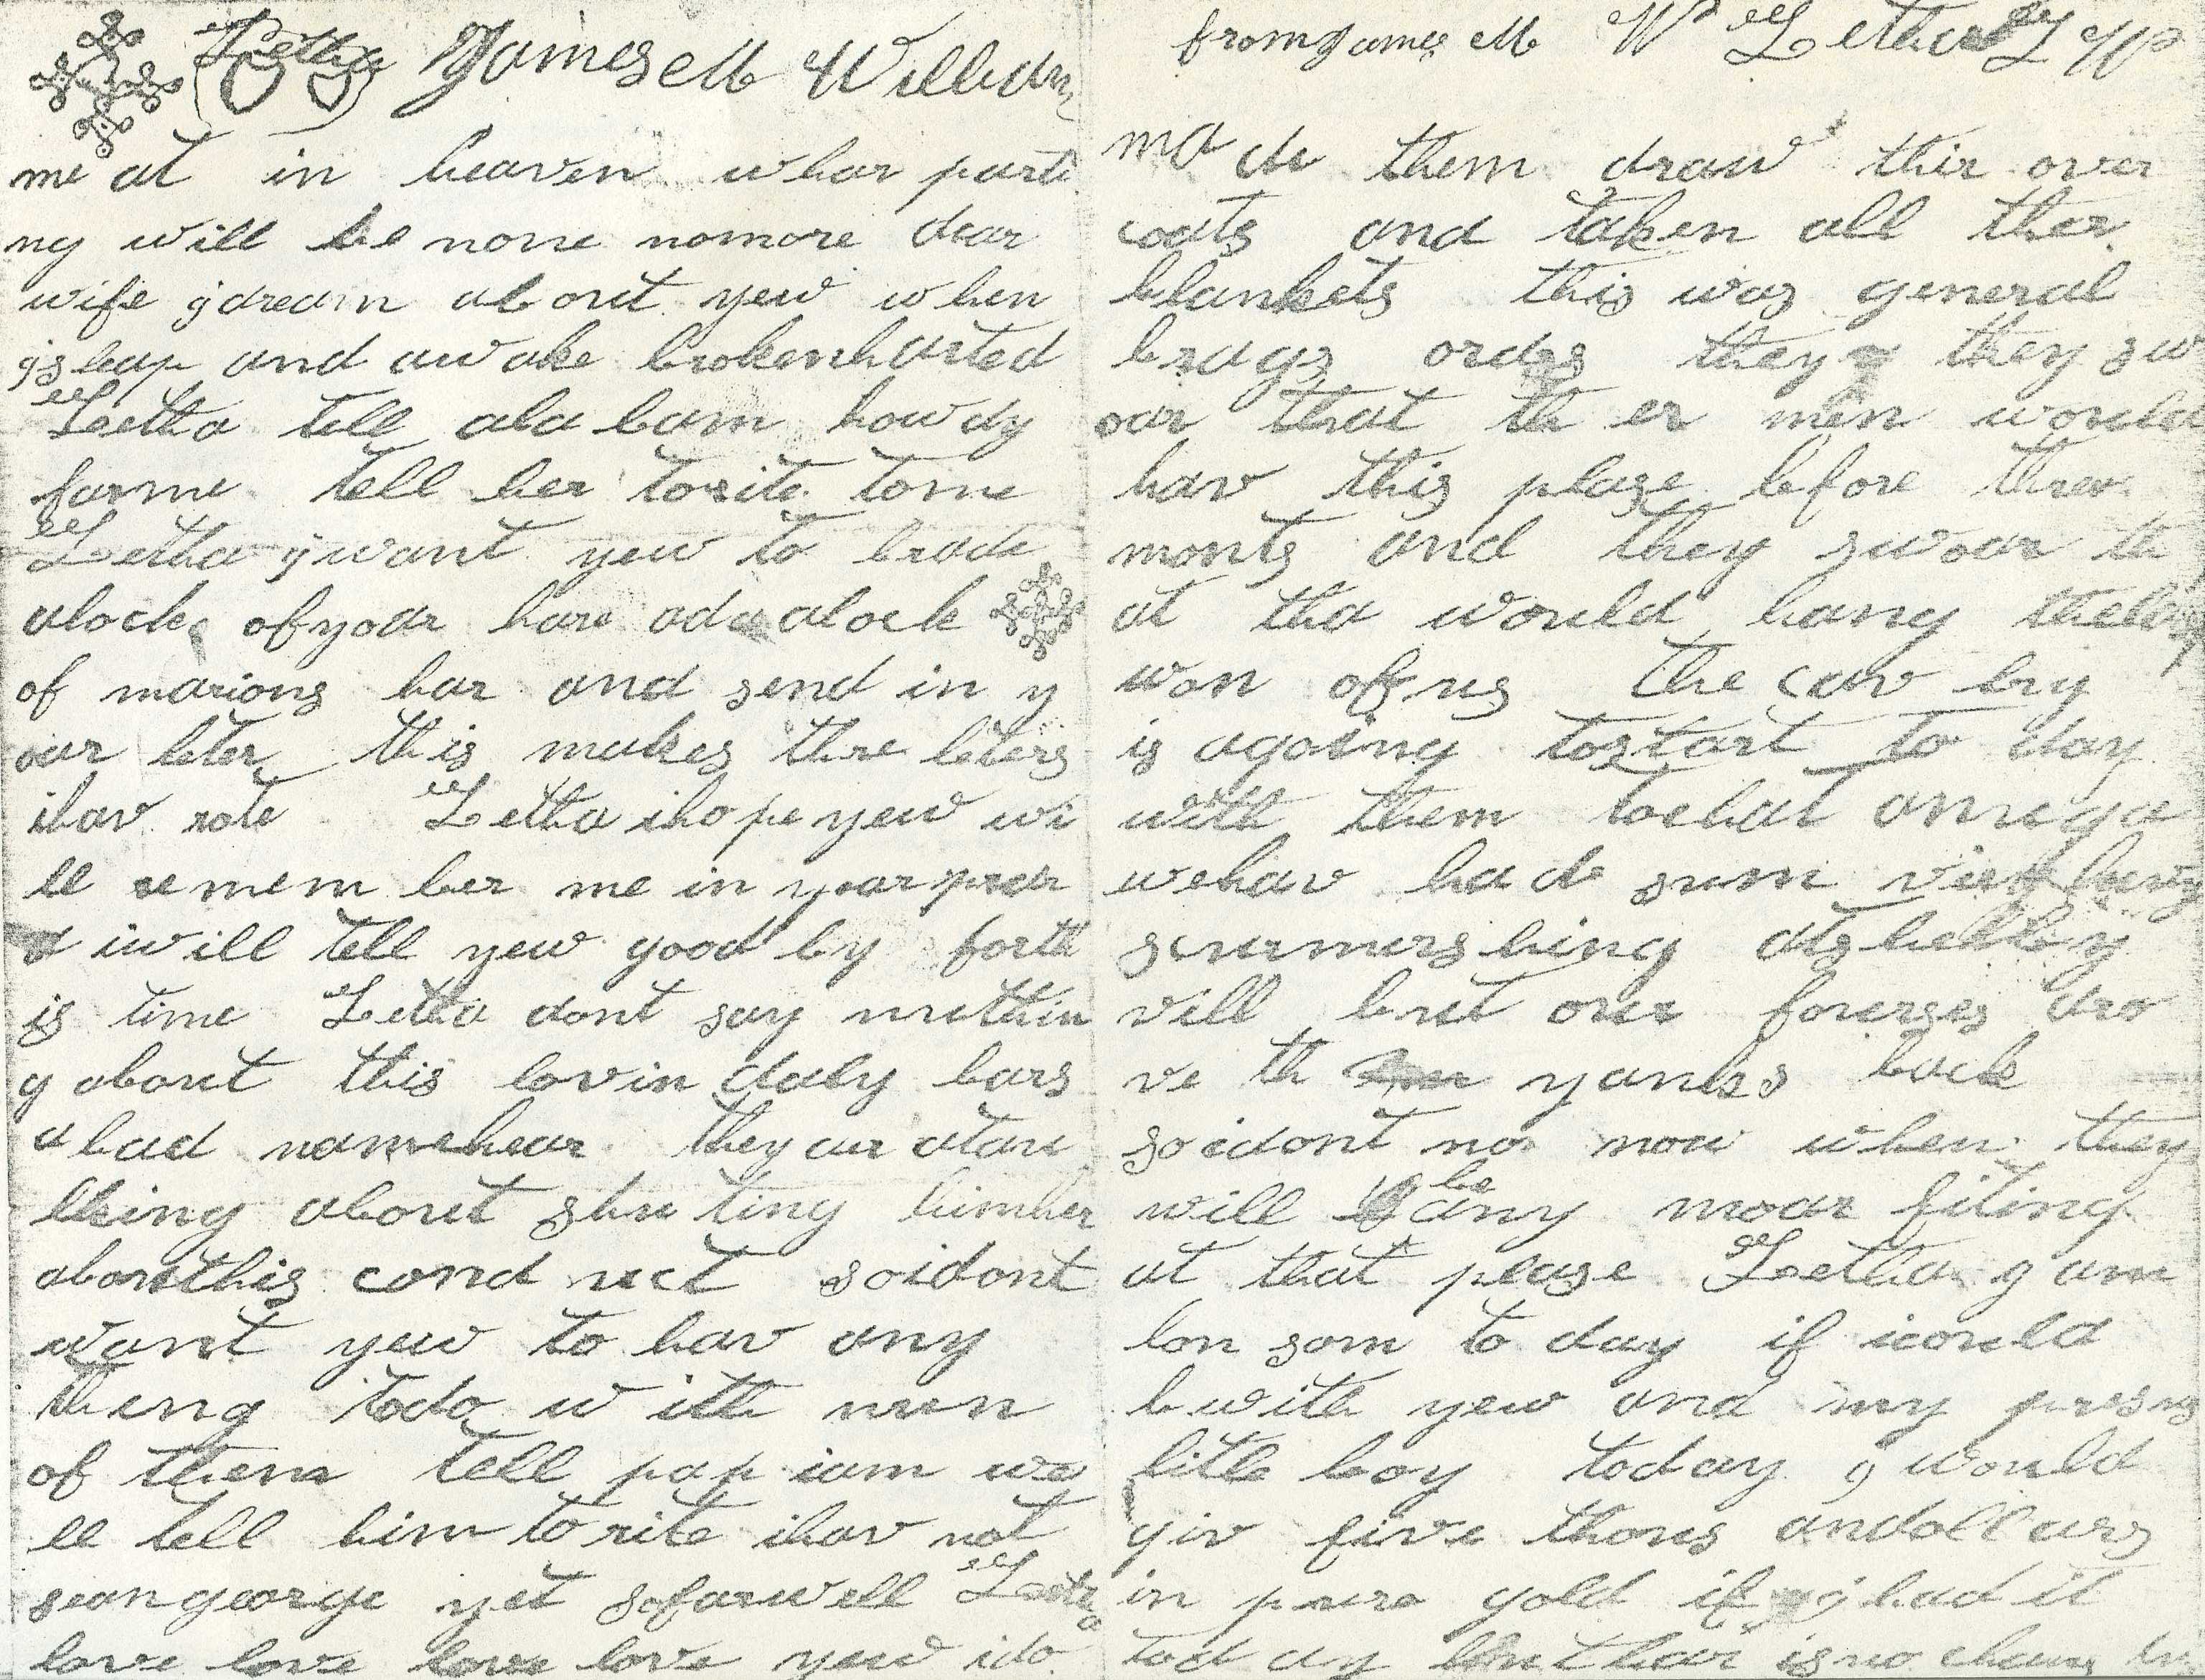 Letha James M William
me at in heaven whar parti
ng will be none nomore dear
wife j dream about yew when
j sleap and awake brokenharted
Leetha tell ala bam howdy
farme tell her to rite tome
Letha j want yew to brade
alock of yoar hare ada alock
of marions har and send in y
our leter this makes thre leters
ihav rote Letha ihope yew wi
ll re mem ber me in your prar
iwill tell yew good by forth
is time Letha dont say nuthin
g about this lovin daly bars
a bad name hear they air ata
lking about shu ting him her
abou this cond uct soidont
want yew to hav any
thing todo with nun
of them tell pap iam we
ll tell him to rite ihav not
sean george yet sofarwell Leetha
love love love love yew ido
from James M W Letha L W
ma de them draw thir over
coats and taken all ther
blankets this was general
brags ordrs they they sw
oar that th er men would
hav this plase before three
monts and they swoar th
at tha would hang
won of us the cav lry
is agoing tostart to day
with them tochat anuga
wehav had e sum
scurmershing atshelby
vill but our forses dro
ve th yankes back
so idont no now when they
will be any moar fiting
at that plase Leetha j am
lon som to day if icould
b with yew and my presus
litle boy today j would
giv five thous andollars
in pure gold if j had it
tod ay but thar is no chans